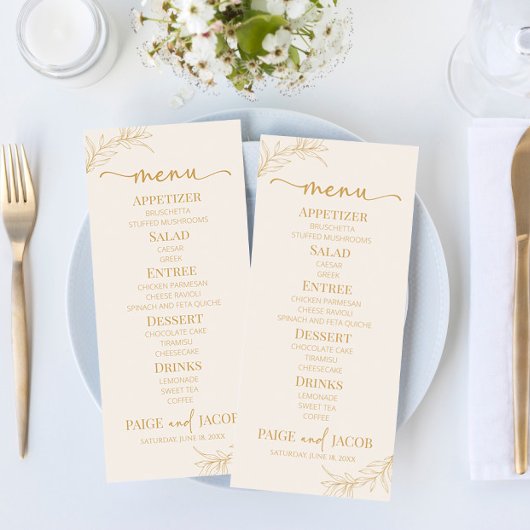 menu
APPETIZER
BRUSCHETTA
STUFFED MUSHROOMS
SALAD
CAESAR
GREEK
ENTREE
CHICKEN PARMESAN
CHEESE RAVIOLI
SPINACH AND FETA QUICHE
DESSERT
CHOCOLATE CAKE
TIRAMISU
CHEESECAKE
DRINKS
LEMONADE
SWEET TEA
COFFEE
PAIGE and JACOB
SATURDAY, JUNE 18, 20XX
menu
APPETIZER
BRUSCHETTA
STUFFED MUSHROOMS
SALAD
CAESAR
GREEK
ENTREE
CHICKEN PARMESAN
CHEESE RAVIOLI
SPINACH AND FETA QUICHE
DESSERT
CHOCOLATE CAKE
TIRAMISU
CHEESECAKE
DRINKS
LEMONADE
SWEET TEA
COFFEE
PAIGE and JACOB
SATURDAY, JUNE 18, 20XX